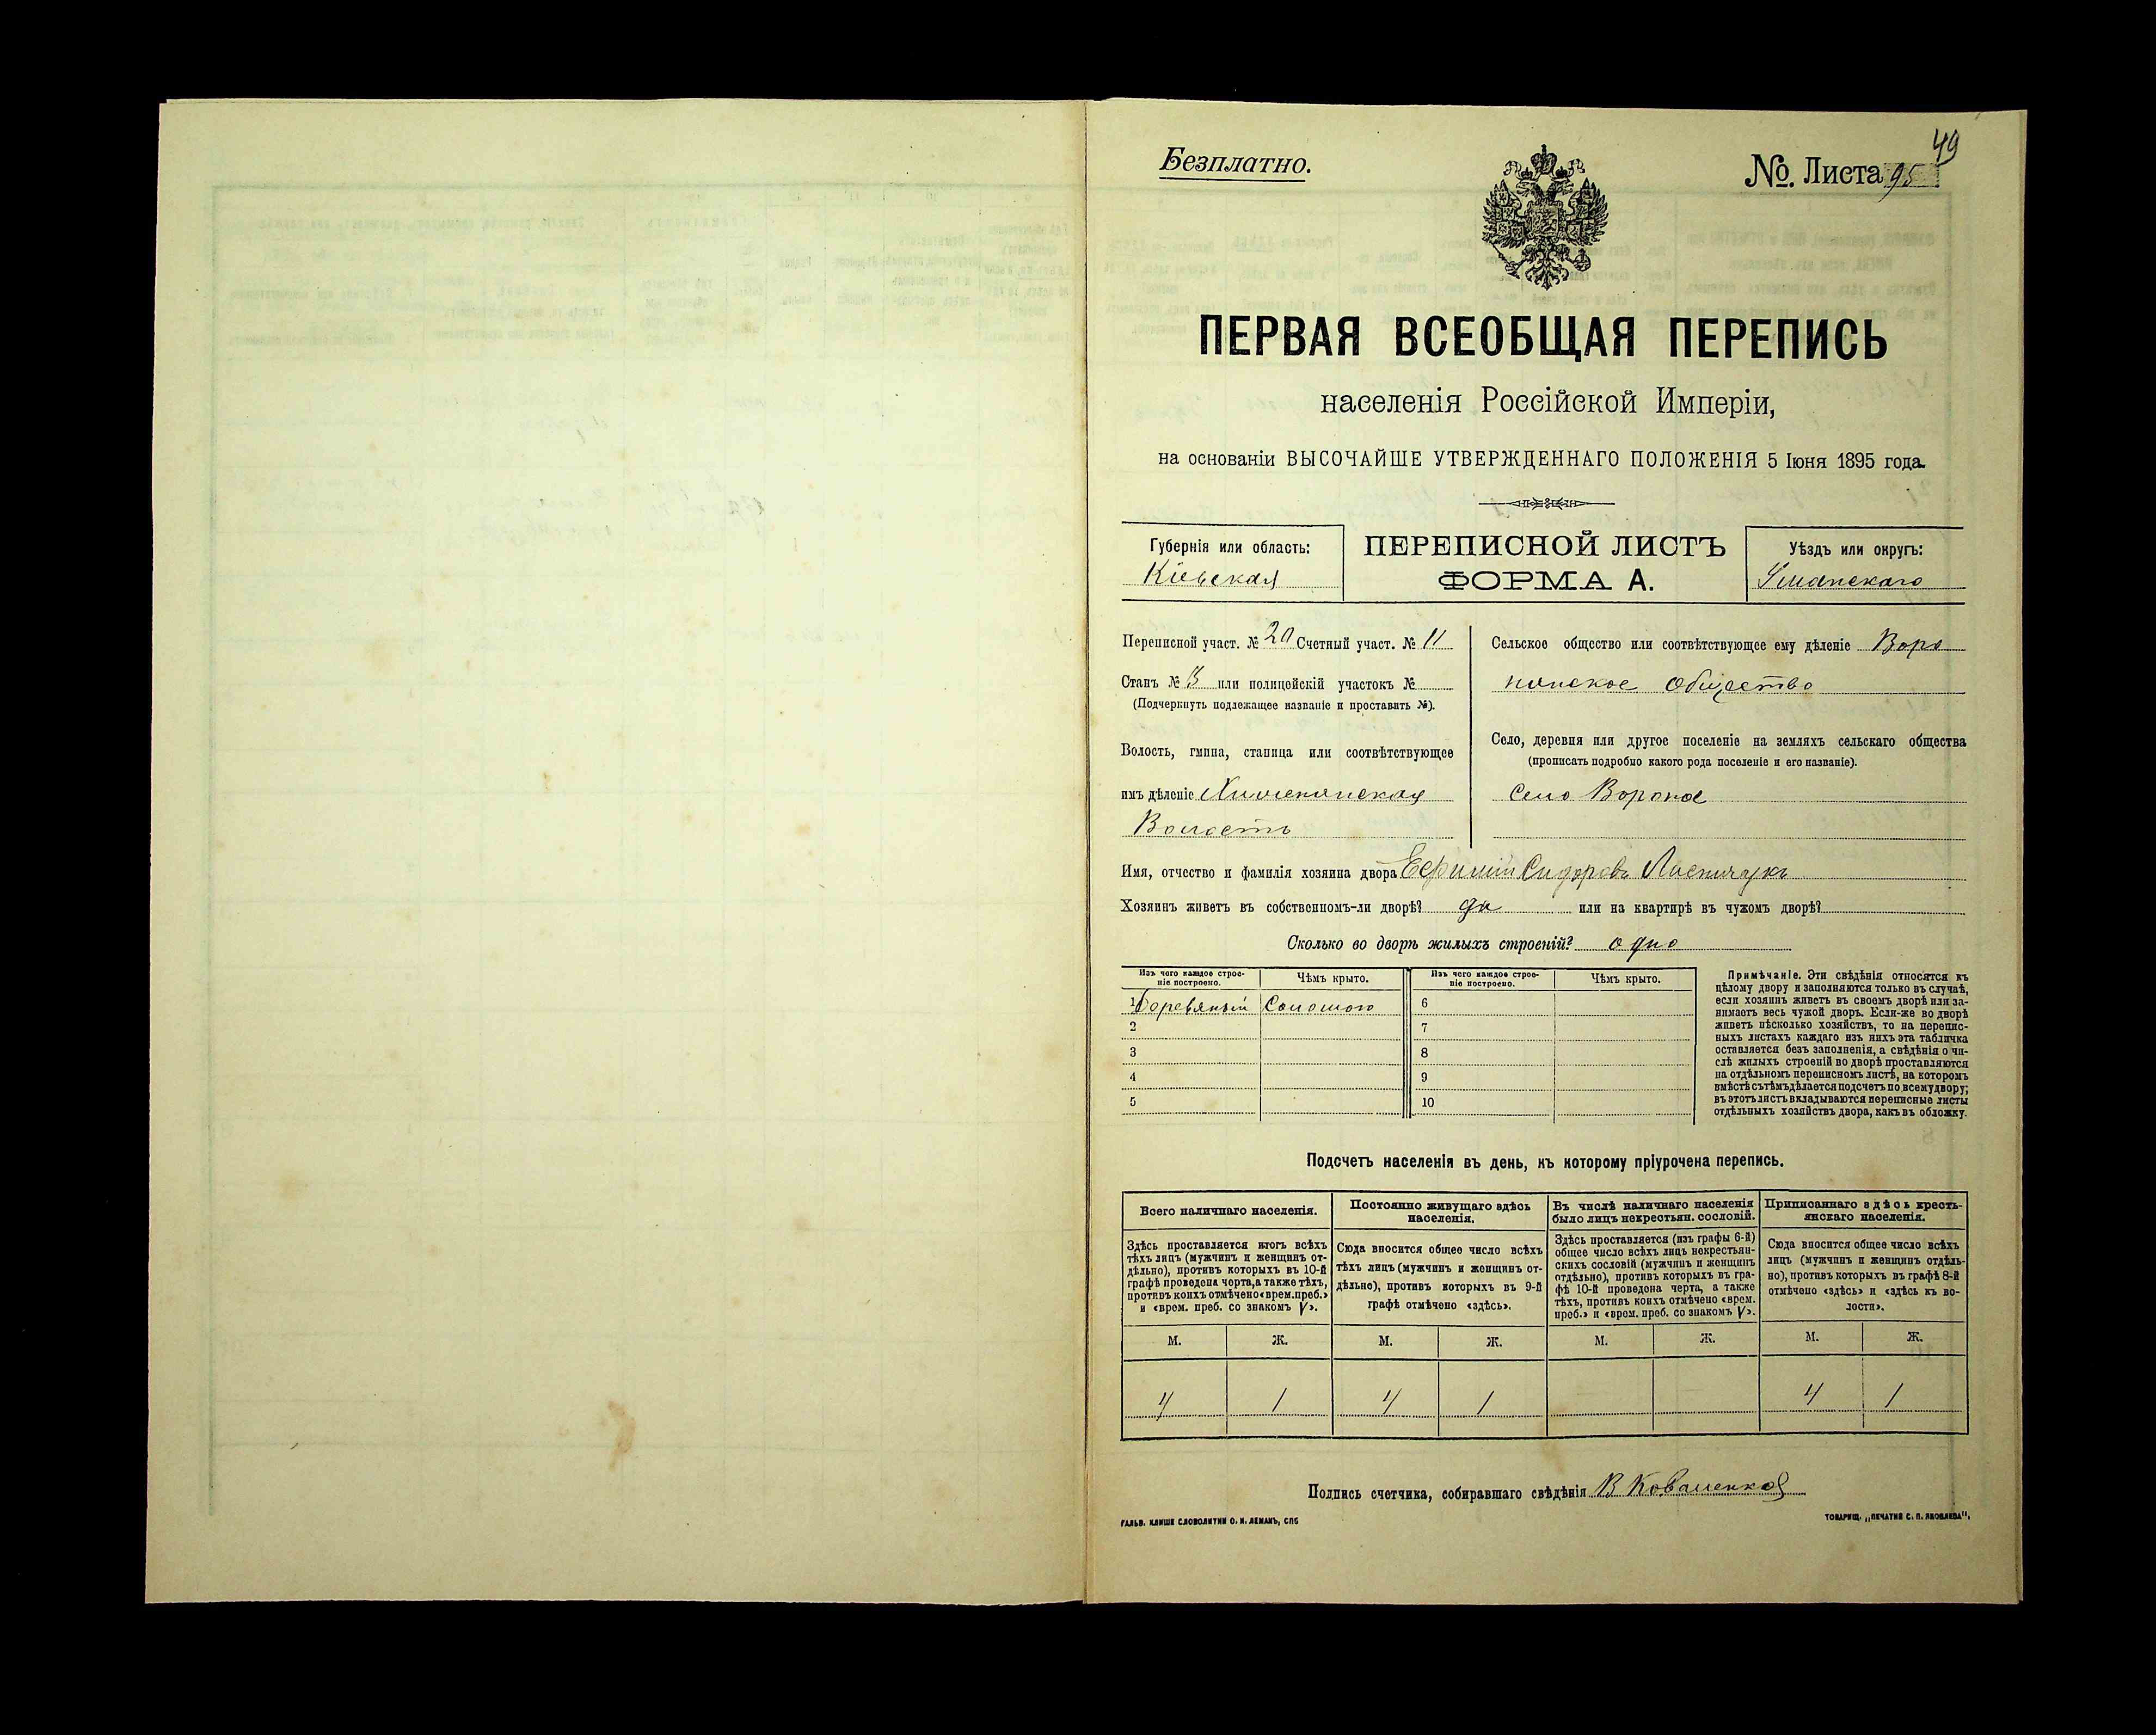 49
Безплатно.
№. Листа 95
ПЕРВАЯ ВСЕОБЩАЯ ПЕРЕПИСЬ
населенія Россійской Имперіи,
на основаніи ВЫСОЧАЙШЕ УТВЕРЖДЕННАГО ПОЛОЖЕНІЯ 5 Іюня 1895 года.
Губернія или область:
Кіевская
ПЕРЕПИСНОЙ ЛИСТЪ
ФОРМА А.
Уѣздъ или округъ:
Уманскаго
Переписной участ. № 20 Счетный участ. № 11
Станъ № 3 или полицейскій участокъ №
(Подчеркнуть подлежащее названіе и проставить №).
Волость, гмина, станица или соотвѣтствующее
имъ дѣленіе
Волость
Сельское общество или соотвѣтствующее ему дѣленіе Воро
нянское Общество
Село, деревня или другое поселеніе на земляхъ сельскаго общества
(прописать подробно какого рода поселеніе и его названіе).
Село Вороное
Имя, отчество и фамилія хозяина двора Ефимій Сидоровъ
Хозяинъ живетъ въ собственномъ-ли дворѣ? да или на квартирѣ въ чужомъ дворѣ?
Сколько во дворѣ жилыхъ строеній? одно
Изъ чего каждое строе-
ніе построено.
Чѣмъ крыто.
Изъ чего каждое строе-
ніе построено.
Чѣмъ крыто.
1 Деревяный Соломою 6
2 7
3 8
4 9
5 10
Примѣчаніе. Эти свѣдѣнія относятся къ
цѣлому двору и заполняются только въ случаѣ,
если хозяинъ живетъ въ своемъ дворѣ или за-
нимаетъ весь чужой дворъ. Если-же во дворѣ
живетъ нѣсколько хозяйствъ, то на перепис-
ныхъ листахъ каждаго изъ нихъ эта табличка
оставляется безъ заполненія, а свѣдѣнія о чи-
слѣ жилыхъ строеній во дворѣ проставляются
на отдѣльномъ переписномъ листѣ, на которомъ
вмѣстѣ съ тѣмъ дѣлается подсчетъ по всему двору;
въ этотъ листъ вкладываются переписные листы
отдѣльныхъ хозяйствъ двора, какъ въ обложку.
Подсчетъ населенія въ день, къ которому пріурочена перепись.
Всего наличнаго населенія.
Здѣсь проставляется итогъ всѣхъ
тѣхъ лицъ (мужчинъ и женщинъ от-
дѣльно), противъ которыхъ въ 10-й
графѣ проведена черта, а также тѣхъ,
противъ коихъ отмѣчено «врем. преб.»
и «врем. преб. со знакомъ V».
Постоянно живущаго здѣсь
населенія.
Сюда вносится общее число всѣхъ
тѣхъ лицъ (мужчинъ и женщинъ от-
дѣльно), противъ которыхъ въ 9-й
графѣ отмѣчено «здѣсь».
Въ числѣ наличнаго населенія
было лицъ некрестьян. сословій.
Здѣсь проставляется (изъ графы 6-й)
общее число всѣхъ лицъ некрестьян-
скихъ сословій (мужчинъ и женщинъ
отдѣльно), противъ которыхъ въ гра-
фѣ 10-й проведена черта, а также
тѣхъ, противъ коихъ отмѣчено «врем.
преб.» и «врем. преб. со знакомъ V».
Приписаннаго здѣсь кресть-
янскаго населенія.
Сюда вносится общее число всѣхъ
лицъ (мужчинъ и женщинъ отдѣль-
но), противъ которыхъ въ графѣ 8-й
отмѣчено «здѣсь» и «здѣсь къ во-
лости».
М. Ж. М. Ж. М. Ж. М. Ж.
4 1 4 1 4 1
Подпись счетчика, собиравшаго свѣдѣнія В Коваленко
ГАЛЬВ. КЛИШЕ СЛОВОЛИТНИ О. И. ЛЕМАНЪ, СПБ
ТОВАРИЩ. „ПЕЧАТНЯ С. П. ЯКОВЛЕВА".